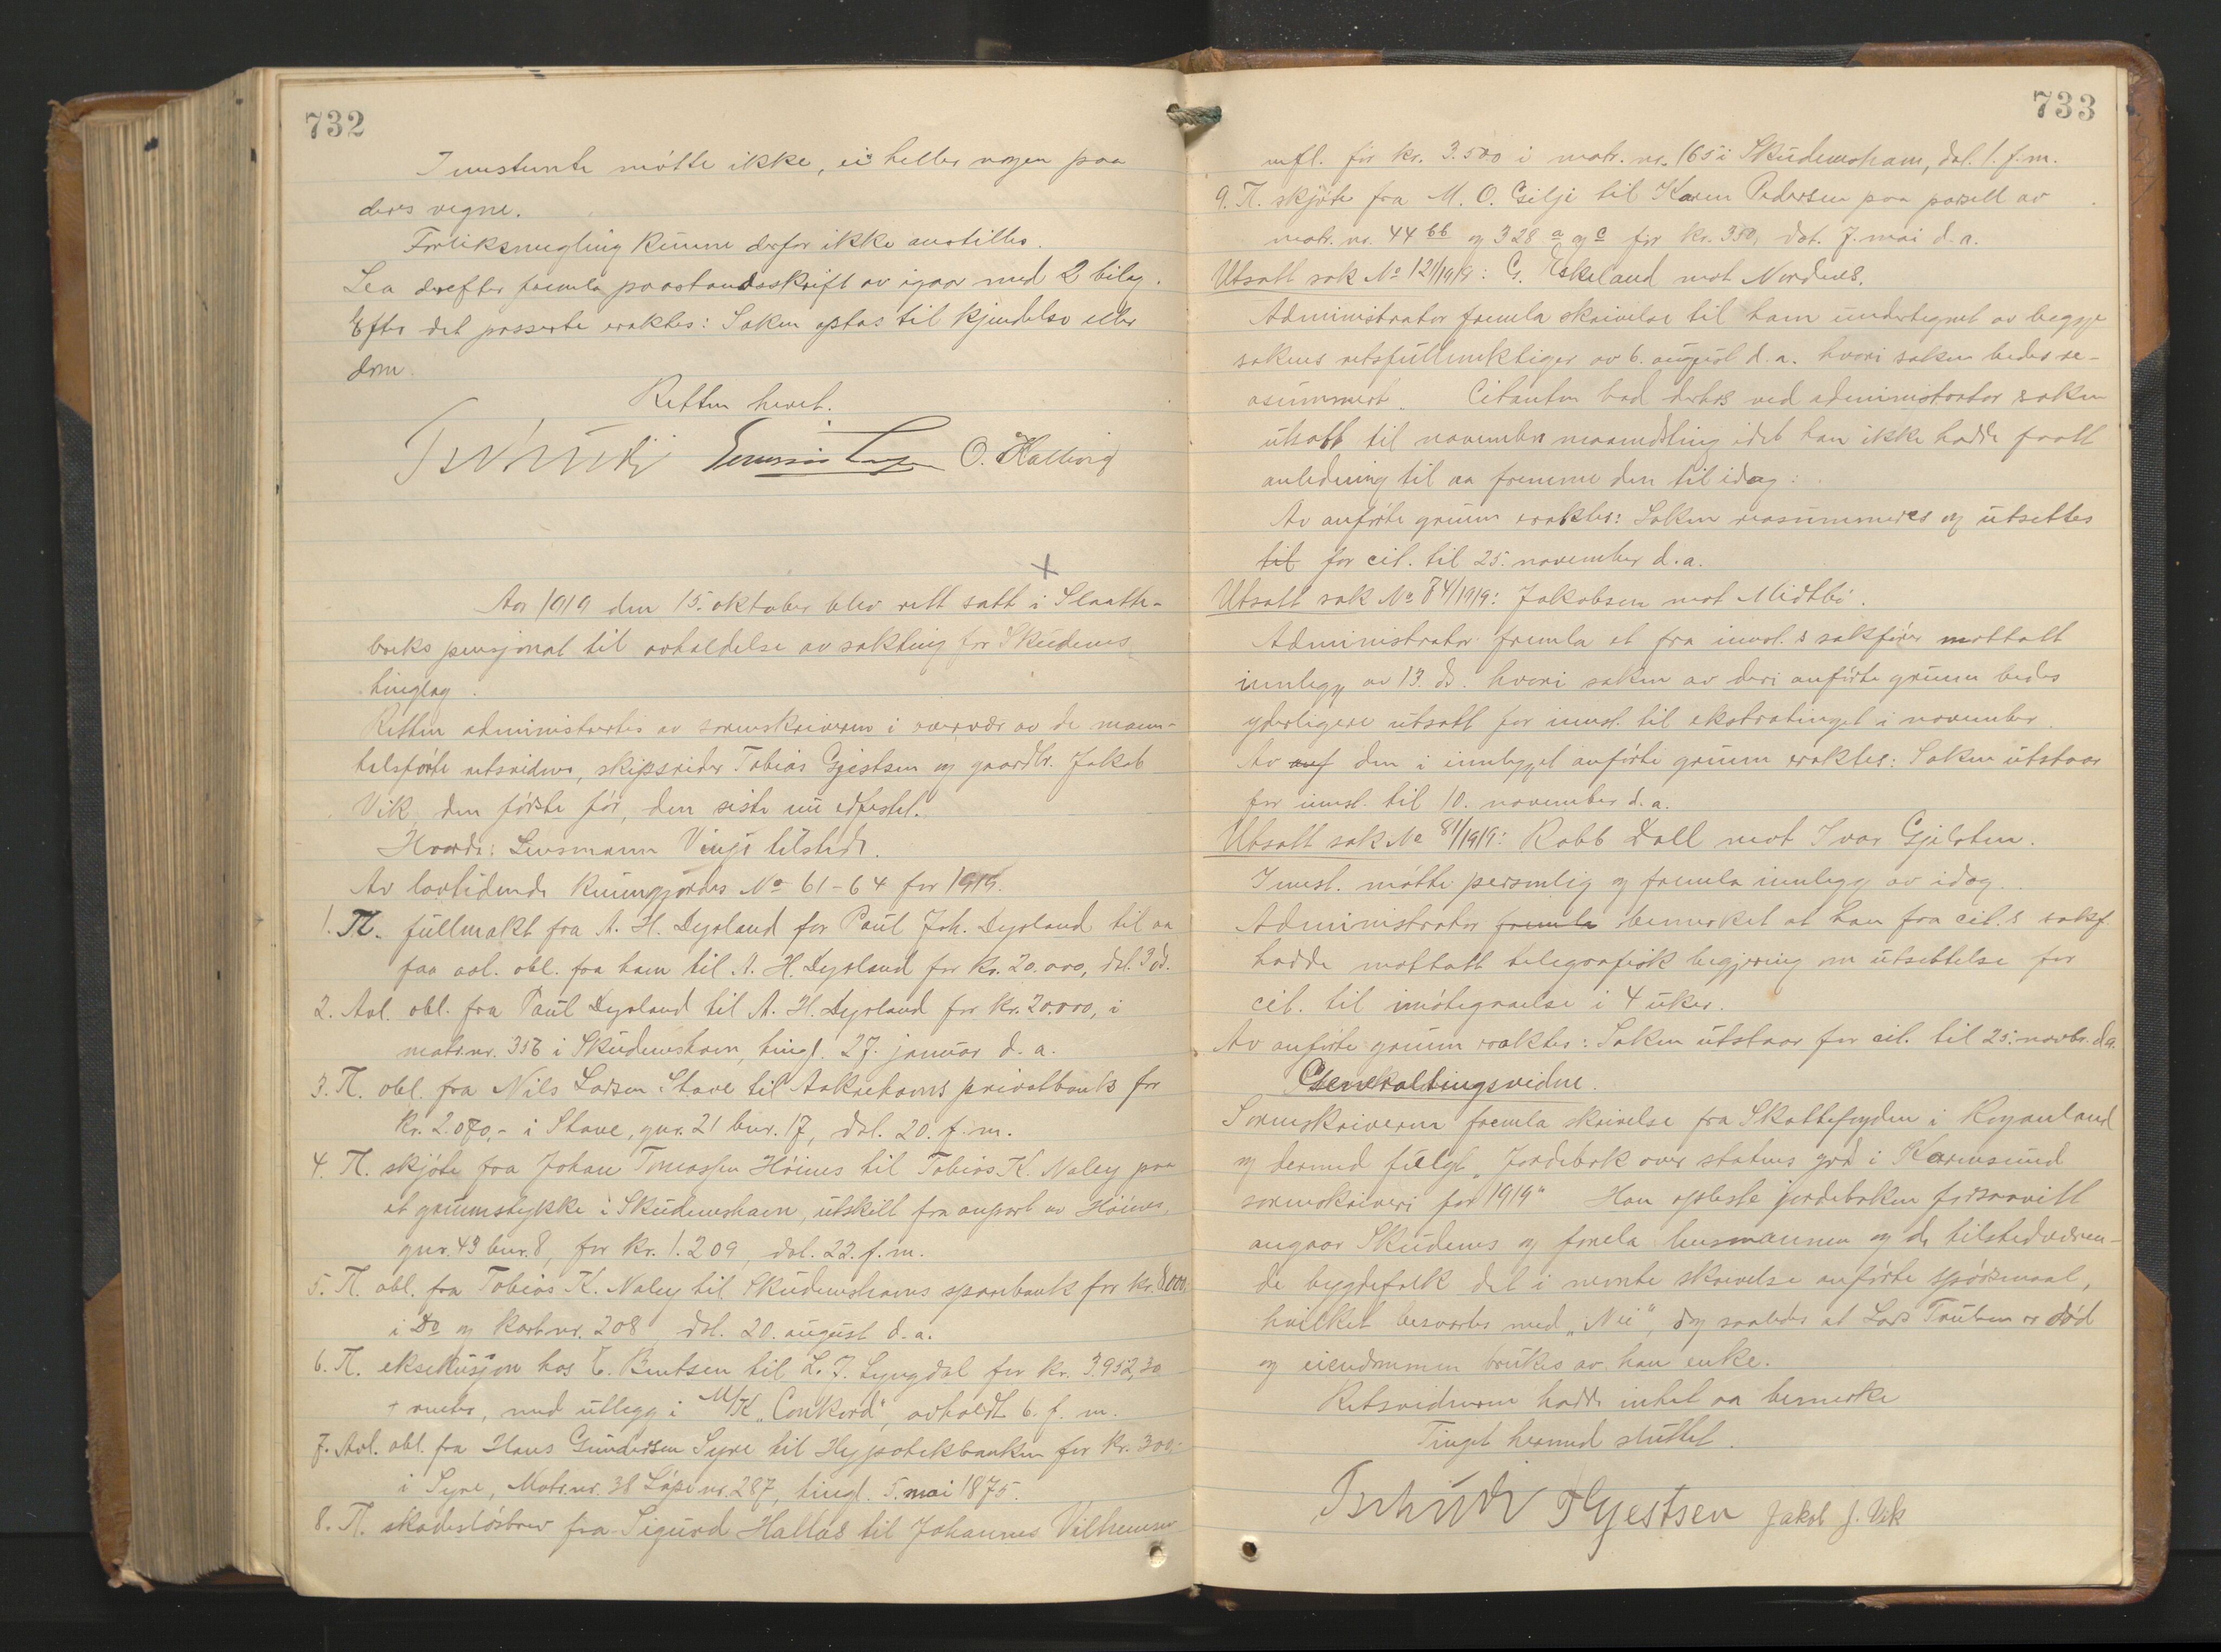 732
Innstevnte møtte ikke, ei heller nogen paa
deres vegne.
Forliksmegling kunne derfor ikke anstilles.
Lea derefter fremla paastandsskrift av igaar med 2 bilag.
Efter det passerte eraktes: Saken optas til kjendelse eller
dom.
Retten hevet.
Tschudi O. Hallvig
Aar 1919 den 15. oktober blev rett satt i Slaatte-
bræks pensjonat til avholdelse av sakting for Skudenes
tinglag.
Retten administrertes av sorenskriveren i overvær av de mann-
talsførte retsvidner, skipsreder Tobias Gjestsen og gaardbr. Jakob
Vik, den første før, den siste nu edfestet.
Hvorda: Lensmann Vinje tilstede.
Av lovtidende kunngjordes No 61-64 for 1919.
1. Tl. fullmakt fra A. H. Dysland for Paul Joh. Dysland til aa
faa avl. obl. fra ham til A. H. Dysland for kr. 20.000, dat. 3 ds.
2. Avl. obl. fra Paul Dysland til A. H. Dysland for kr. 20.000, i
matr.nr. 356 i Skudeneshavn, tingl. 27. januar d. a.
3. Tl. obl. fra Nils Larsen Stave til Aakrehavns privatbank for
kr. 2.070,- i Stave, gnr. 21 bnr. 17, dat. 20. f. m.
4. Tl. skjøte fra Johan Tomassen Høines til Tobias K. Naley paa
et grunnstykke i Skudeneshavn, utskilt fra anpart av Høines,
gnr. 43 bnr. 8, for kr. 1.209, dat. 22. f. m.
5. Tl. obl. fra Tobias K. Naley til Skudeneshavns sparebank for kr. 8000,
i Do og kartnr. 208, dat. 20. august d. a.
6. Tl. eksekusjon hos E. Bentsen til L. J. Lyngdal for kr. 3952,30
+ renter, med utlegg i M/K "Conkord", avholdt 6. f. m.
7. Avl. obl. fra Hans Gundersen Syre til Hypotekbanken for kr. 300,-
i Syre, Matr.nr. 38 Løpenr. 287, tingl. 5. mai 1875.
8. Tl. skadesløsbrev fra Sigurd Hallas til Johannes Vilhemsen
733
mfl. for kr. 3.500 i matr. nr. 165 i Skudeneshavn, dat. 1. f. m.
9. Tl. skjøte fra M. O. Gilje til Karen Pedersen paa parsell av
matr. nr. 44 bb og 328 a og c for kr. 350, dat. 7. mai d. a.
Utsatt sak No 121/1919: G. Eskeland mot Nordnes.
Administrator fremla skrivelse til ham undertegnet av begge
sakens retsfullmektiger av 6. august d. a. hvori saken bedes re-
asummert. Citanten bad derhos ved administrator saken
utsatt til november maanedsting idet han ikke hadde faatt
anledning til aa fremme den til idag.
Av anførte grunn eraktes: Saken reasummeres og utsettes
til for cit. til 25. november d. a.
Utsatt sak No 84/1919: Jakobsen mot Midtbø.
Administrator fremla et fra innst.s sakfører mottatt
innlegg av 13. ds. hvori saken av deri anførte grunn bedes
yderligere utsatt for innst. til ekstratinget i november.
Av anf den i innlegget anførte grunn eraktes: Saken utstaar
for innst. til 10. november d. a.
Utsatt sak No 81/1919: Robb Dall mot Ivar Gjelsten.
Innst. møtte personlig og fremla innlegg av idag.
Administrator fremla bemerket at han fra cit.s sakf.
hadde mottatt telegrafisk begjæring om utsettelse for
cit. til imøtegaaelse i 4 uker.
Av anførte grunn eraktes: Saken utstaar for cit. til 25. novbr. d.a.
Generaltingsvidne.
Sorenskriveren fremla skrivelse fra Skattefogden i Rogaland
og dermed fulgt "Jordebok over statens gods i Karmsund
sorenskriveri for 1919" Han oplæste jordeboken forsaavitt
angaar Skudenes og forela lensmannen og de tilstedeværen-
de bygdefolk det i nevnte skrivelse anførte spørsmaal,
hvilket besvartes med "Nei", dog saaledes at Lars Knutsen er død
og eiendommen brukes av hans enke.
Retsvidnerne hadde intet aa bemerke
Tinget hermed sluttet.
Tschudi T Gjestsen Jakob J. Vik